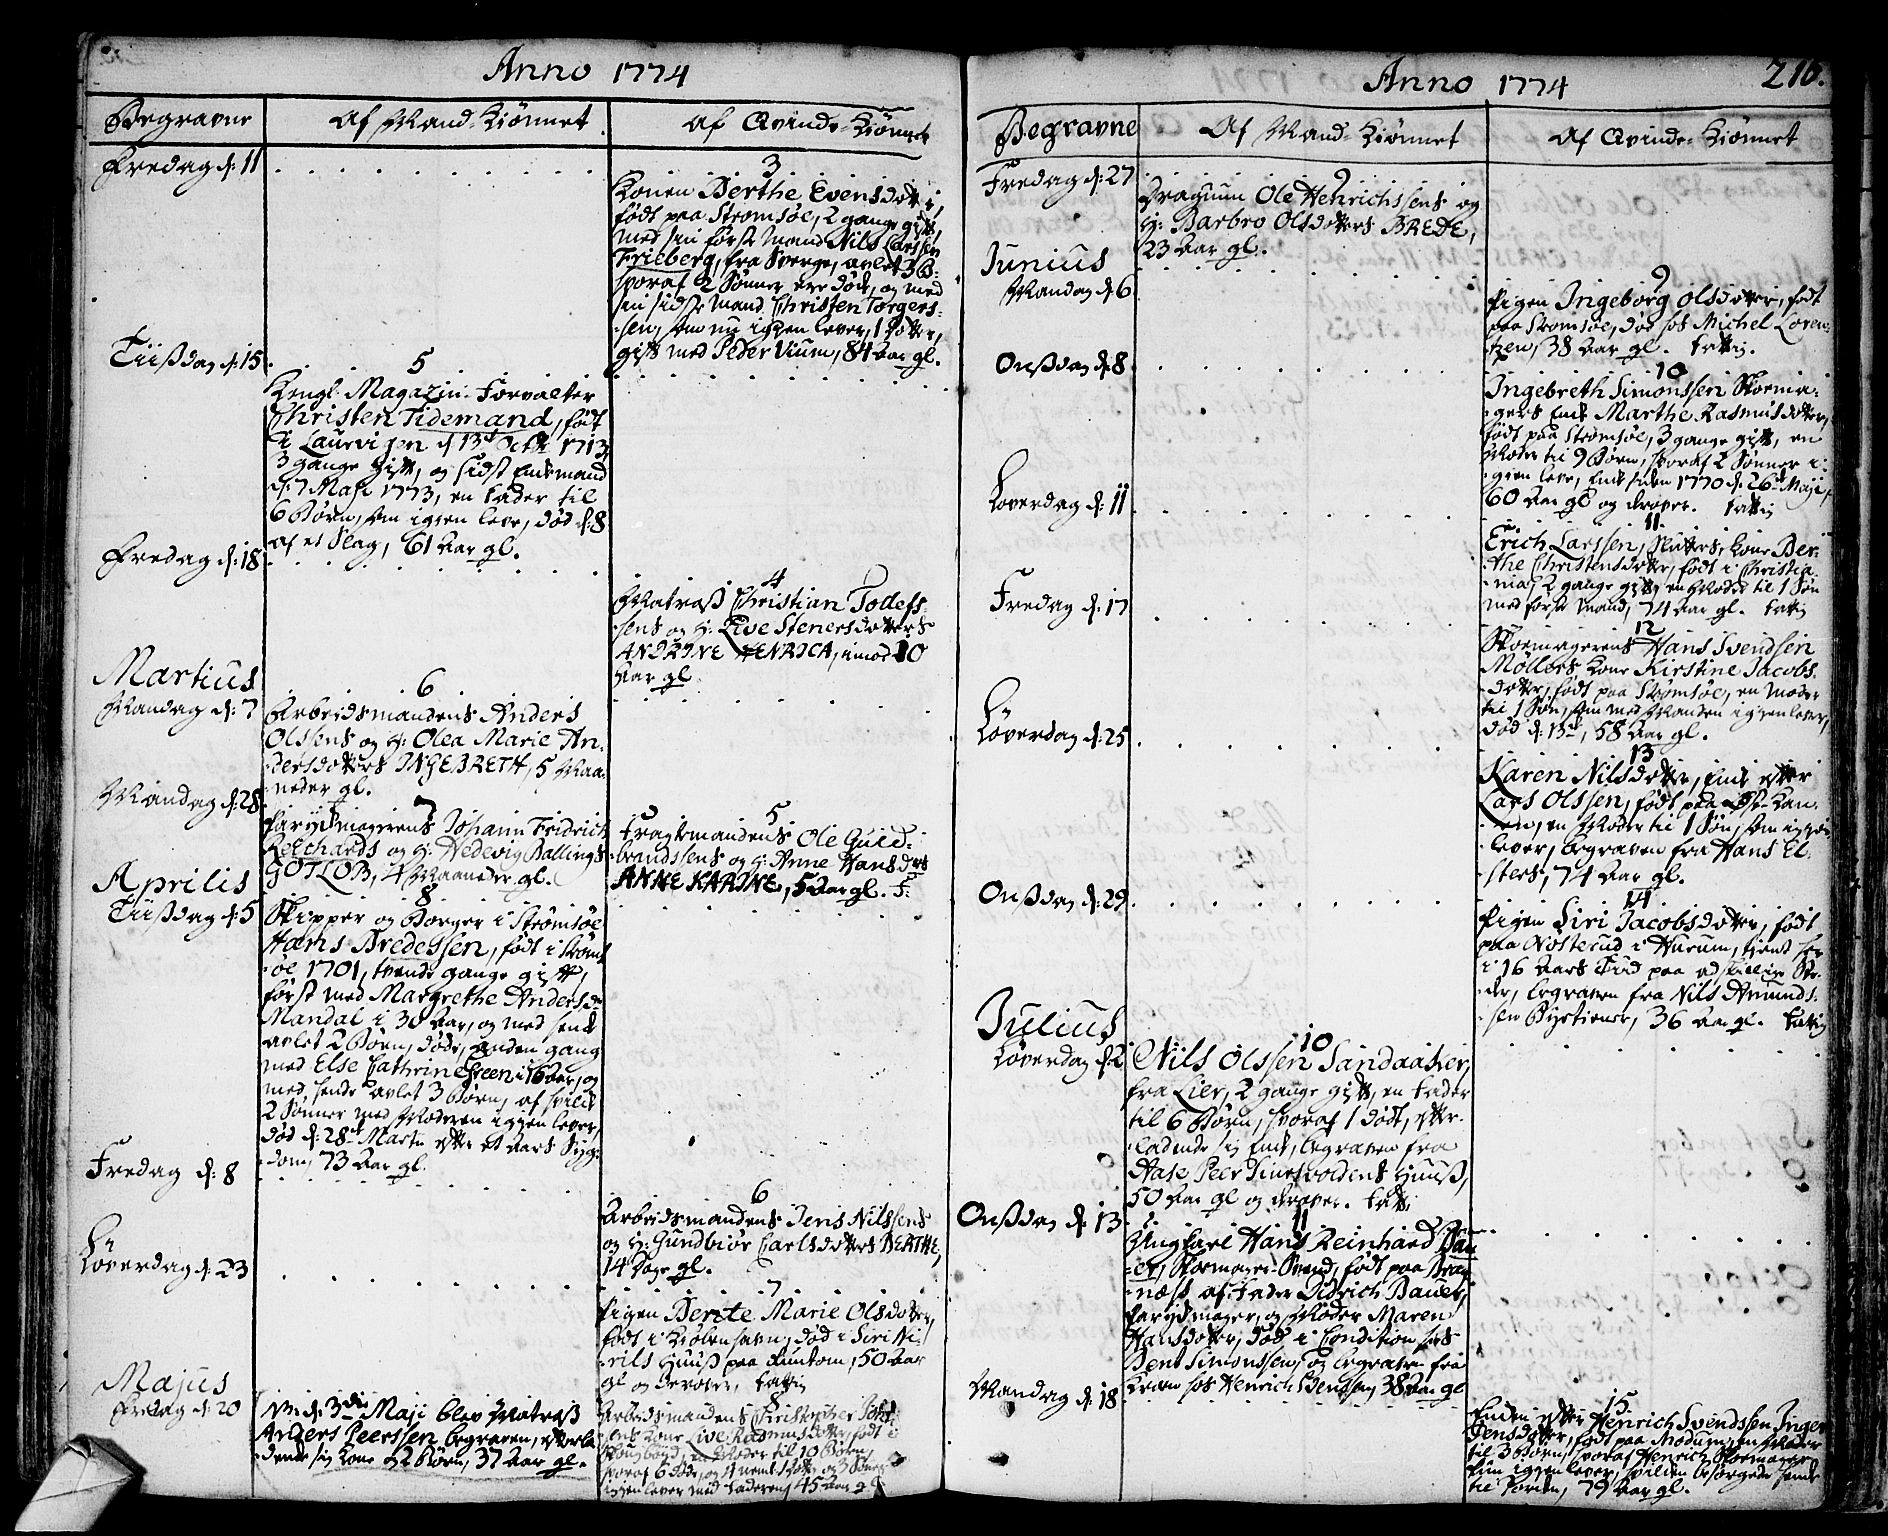 Anno 1774
Begravne
Af Mand-Kiönnet
Af Qvinde-Kiönnet
Fredag d: 11
3
Konen Berthe Evensdotter,
födt paa Strömsöe, 2 gange gift,
med sin første Mand Nils Larssen
Frieberg, fra Sverge, avlet 3 B:
hvoraf 2 Sønner ere døde, og med
sin sidste Mand Christen Torgers-
sen, som nu igien lever, 1 Dotter,
gift med Peder Vium, 81 Aar gl.
Tiißdag d: 15
5
Kongl: Magazin-Forvalter
Christen Tidemand, födt
i Laurvigen d 13d Octbr 1713,
3 gange gift, og sidst Enkemand
d: 7 Maji 1773, en Fader til
6 Börn, som igien leve, död d: 8
af et Slag, 61 Aar gl.
Fredag d: 18
4
Matroß Christian Tollefs-
sens og H: Live Stenersdotters
ANDRINE HENRICA, imod 10
Aar gl.
Martius
Mandag d: 7
6
Arbeidsmandens Anders
Olssens og H: Olea Marie An-
dersdotters INGEBRETH, 5 Maa-
neder gl.
Mandag d: 28
7
Parykmagerens Johann Fridrich
Reichards og H: Hedevig Ballings
GOTLOB, 4 Maaneder gl.
5
Fragtmandens Ole Guld-
brandssens og H: Anne Hansdtrs
ANNE KARINE, 5 Aar gl. F:
Aprilis
Tiißdag d: 5
8
Skipper og Borger i Strömsöe
Hans Bredessen, födt i Ströms-
öe 1701, tvende gange gift,
först med Margrethe Andersdr
Mandal i 30 Aar, og med hende
avlet 2 Börn, döde, anden gang
med Else Cathrine Green i 16 Aar, og
med hende avlet 3 Börn, af hvilke
2 Sønner med Moderen igien lever,
död d: 28d Martii efter et Aars Syg-
dom, 73 Aar gl.
Fredag d: 8
6
Arbeidsmandens Jens Nilssens
og H: Gundbiör Carlsdotters BERTHE,
14 Dage gl.
Löverdag d: 23
7
Pigen Berete Marie Olsdotter,
födt i Kiöbenhavn, död i Siri Ni-
rils Huuß paa Tuntom, 50 Aar
gl og derover, Fattig
Majus
Fredag d: 20
NB: d: 3die Maji blev Matroß
Anders Peerssen begraven, efterla-
dende sig Kone og 2 Börn, 37 Aar gl.
8
Arbeidsmandens Christopher Joh-
sens Kone Live Rasmusdotter, födt i
Skougböyd, en Moder til 10 Börn,
hvoraf 6 döde, og 4 nemt 1 Dotter og 3 Sönner
igien lever med Faderen, 45 Aar gl
Anno 1774
216.
Begravne
Af Mand-Kiönnet
Af Qvinde-Kiönnet
Fredag d: 27
9
Dragoun Ole Henrichssens og
H: Barbro Olsdotters BREDE,
23 Aar gl.
Junius
Mandag d: 6
9
Pigen Ingeborg Olsdotter, födt
paa Strömsöe, död hos Michel Loren-
tzen, 38 Aar gl. Fattig.
Onßdag d: 8
10
Ingebreth Simonssen Skoema-
gers Enke Marthe Rasmusdotter,
födt paa Strömsöe, 3 gange gift, en
Moder til 9 Börn, hvoraf 2 Sönner i-
gien leve, Enke siden 1770 d: 26d Maji,
60 Aar gl og derover. Fattig
Löverdag d: 11
11
Erich Larssen, Slutters Kone Ber-
the Christensdotter, födt i Christia-
nia, 2 gange gift, en Moder til 1 Sön
med förste Mand, 74 Aar gl. Fattig
Fredag d: 17
12
Skoemagerens Hans Svendsen
Möllers Kone Kirstine Jacobs-
dotter, födt paa Strömsöe, en Moder
til 1 Sön, som med Manden igien lever,
död d: 13d, 58 Aar gl.
Löverdag d: 25
13
Karen Nilsdotter, Enke efter
Lars Olssen, födt paa Øst-Kan-
ten, en Moder til 1 Sön, som igien
lever, begraven fra Hans El-
sters, 74 Aar gl.
Onßdag d: 29
14
Pigen Siri Jacobsdotter, födt
paa Nosterud i Hurum, tient her
i 16 Aars Tiid paa adskillige Ste-
der, begraven fra Nils Amunds-
sen Byetiener, 36 Aar gl. Fattig
Julius
Löverdag d: 2
10
Nils Olssen Sandaaker,
fra Lier, 2 gange gift, en Fader
til 6 Börn, hvoraf 1 dödt, efter-
ladende sig Enke, begraven fra
Aase Peer Simesvoldens Huuß,
50 Aar gl og derover. Fattig
Onßdag d: 13
11
Ungkarl Hans Reinhard Bau-
er, Skoemager-Svend, födt paa Brag-
næß af Fader Didrich Bauer,
Parykmager, og Moder Maren
Hansdotter, död i Condition hos
Bent Simonssen, og begraven fra
Kroen hos Henrich Bendsen, 38 Aar gl
Mandag d: 18
15
Enken efter Henrich Svendssen, Inger
Jensdotter, födt paa Modum, en Moder
til 3 Börn, hvoraf Henrich Skoemager
kun igien lever, hvilken besörgede hende
til Jorden, 79 Aar gl.